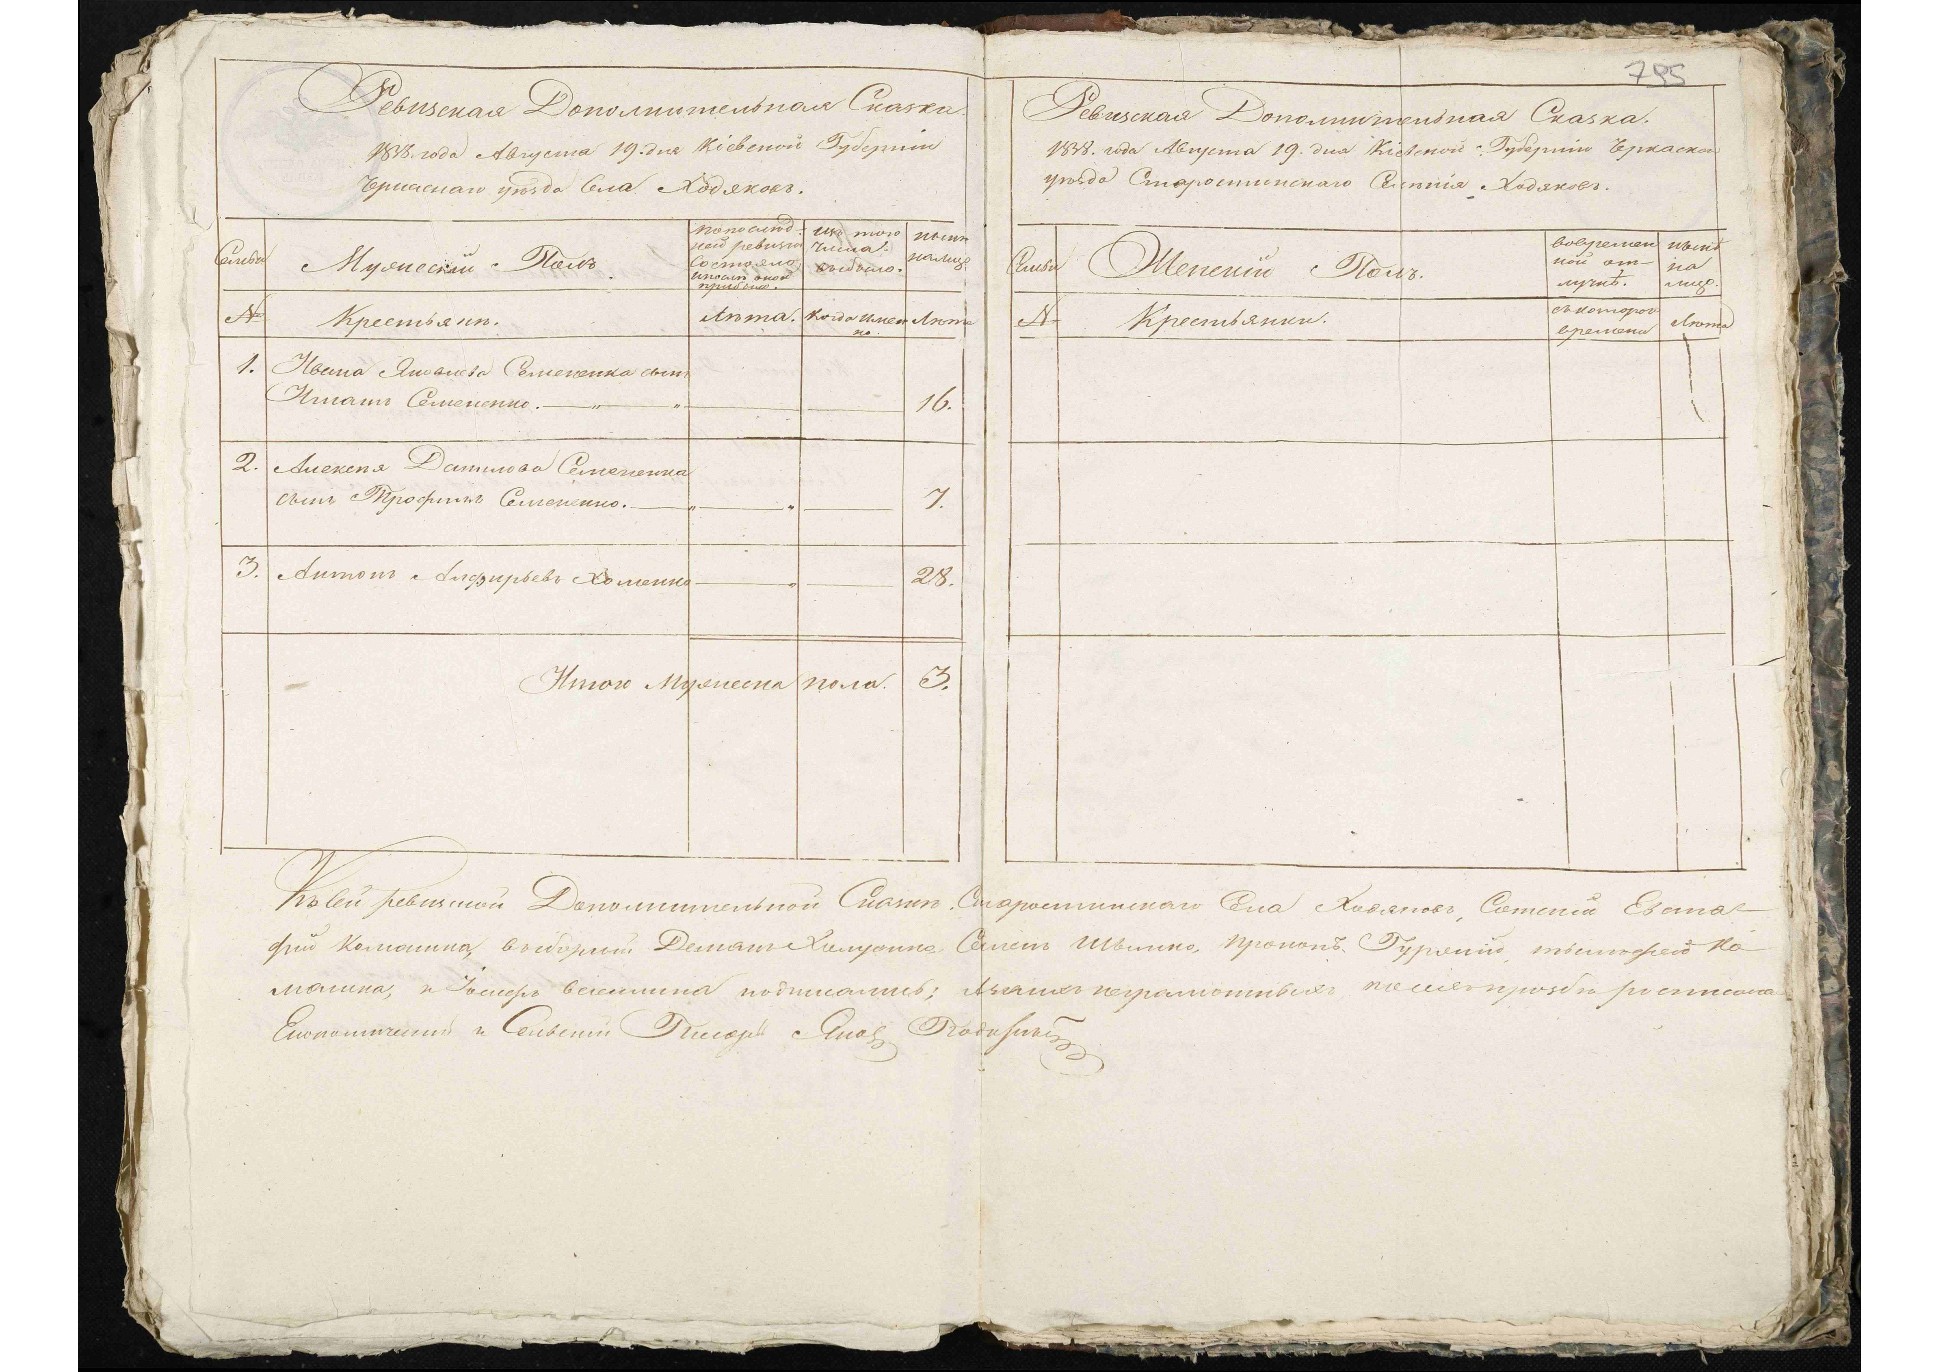 795
Ревизская Дополнительная Сказка.
1818 года Августа 19. дня Кіевской Губерніи
Черкаскаго уѣзда Села Ходяковъ.
Семьи
Мужеской Полъ
по послѣд-
ней ревизіи
состояло
и послѣ оной
прибыло.
изъ того
числа
выбыло.
нынѣ
на лицо
№
Крестьяне.
Лѣта.
Когда имен
но.
Лѣта
1. Ивана Яковлева Семененка сынъ
Игнатъ Семененко. 16.
2. Алексея Данилова Семененка
сынъ Трофимъ Семененко. 7.
3. Антонъ Алфирьевъ Хоменко 28.
Итого Мужеска пола. 3.
Ревизская Дополнительная Сказка.
1818. года Августа 19. дня Кіевской Губерніи Черкаскаго
уѣзда Старостинскаго Селенія Ходяковъ.
Семьи
Женскій Полъ.
во времен
ной от-
лучкѣ.
нынѣ
на
лицо.
№
Крестьянки.
съ котораго
времени
Лѣта
Къ сей ревизской Дополнительной Сказкѣ Старостинскаго Села Ходяковъ, Сотскій Евста-
фій Калашник, выборный Демьянъ Семенъ Швыдко, Прокопъ Гуржій, Тимофей Ка
лашника, и Іосифъ подписались; А вместо ихъ неграмотныхъ по ихъ прозбѣ росписался
Економический и Сельскій Писарь Яковъ